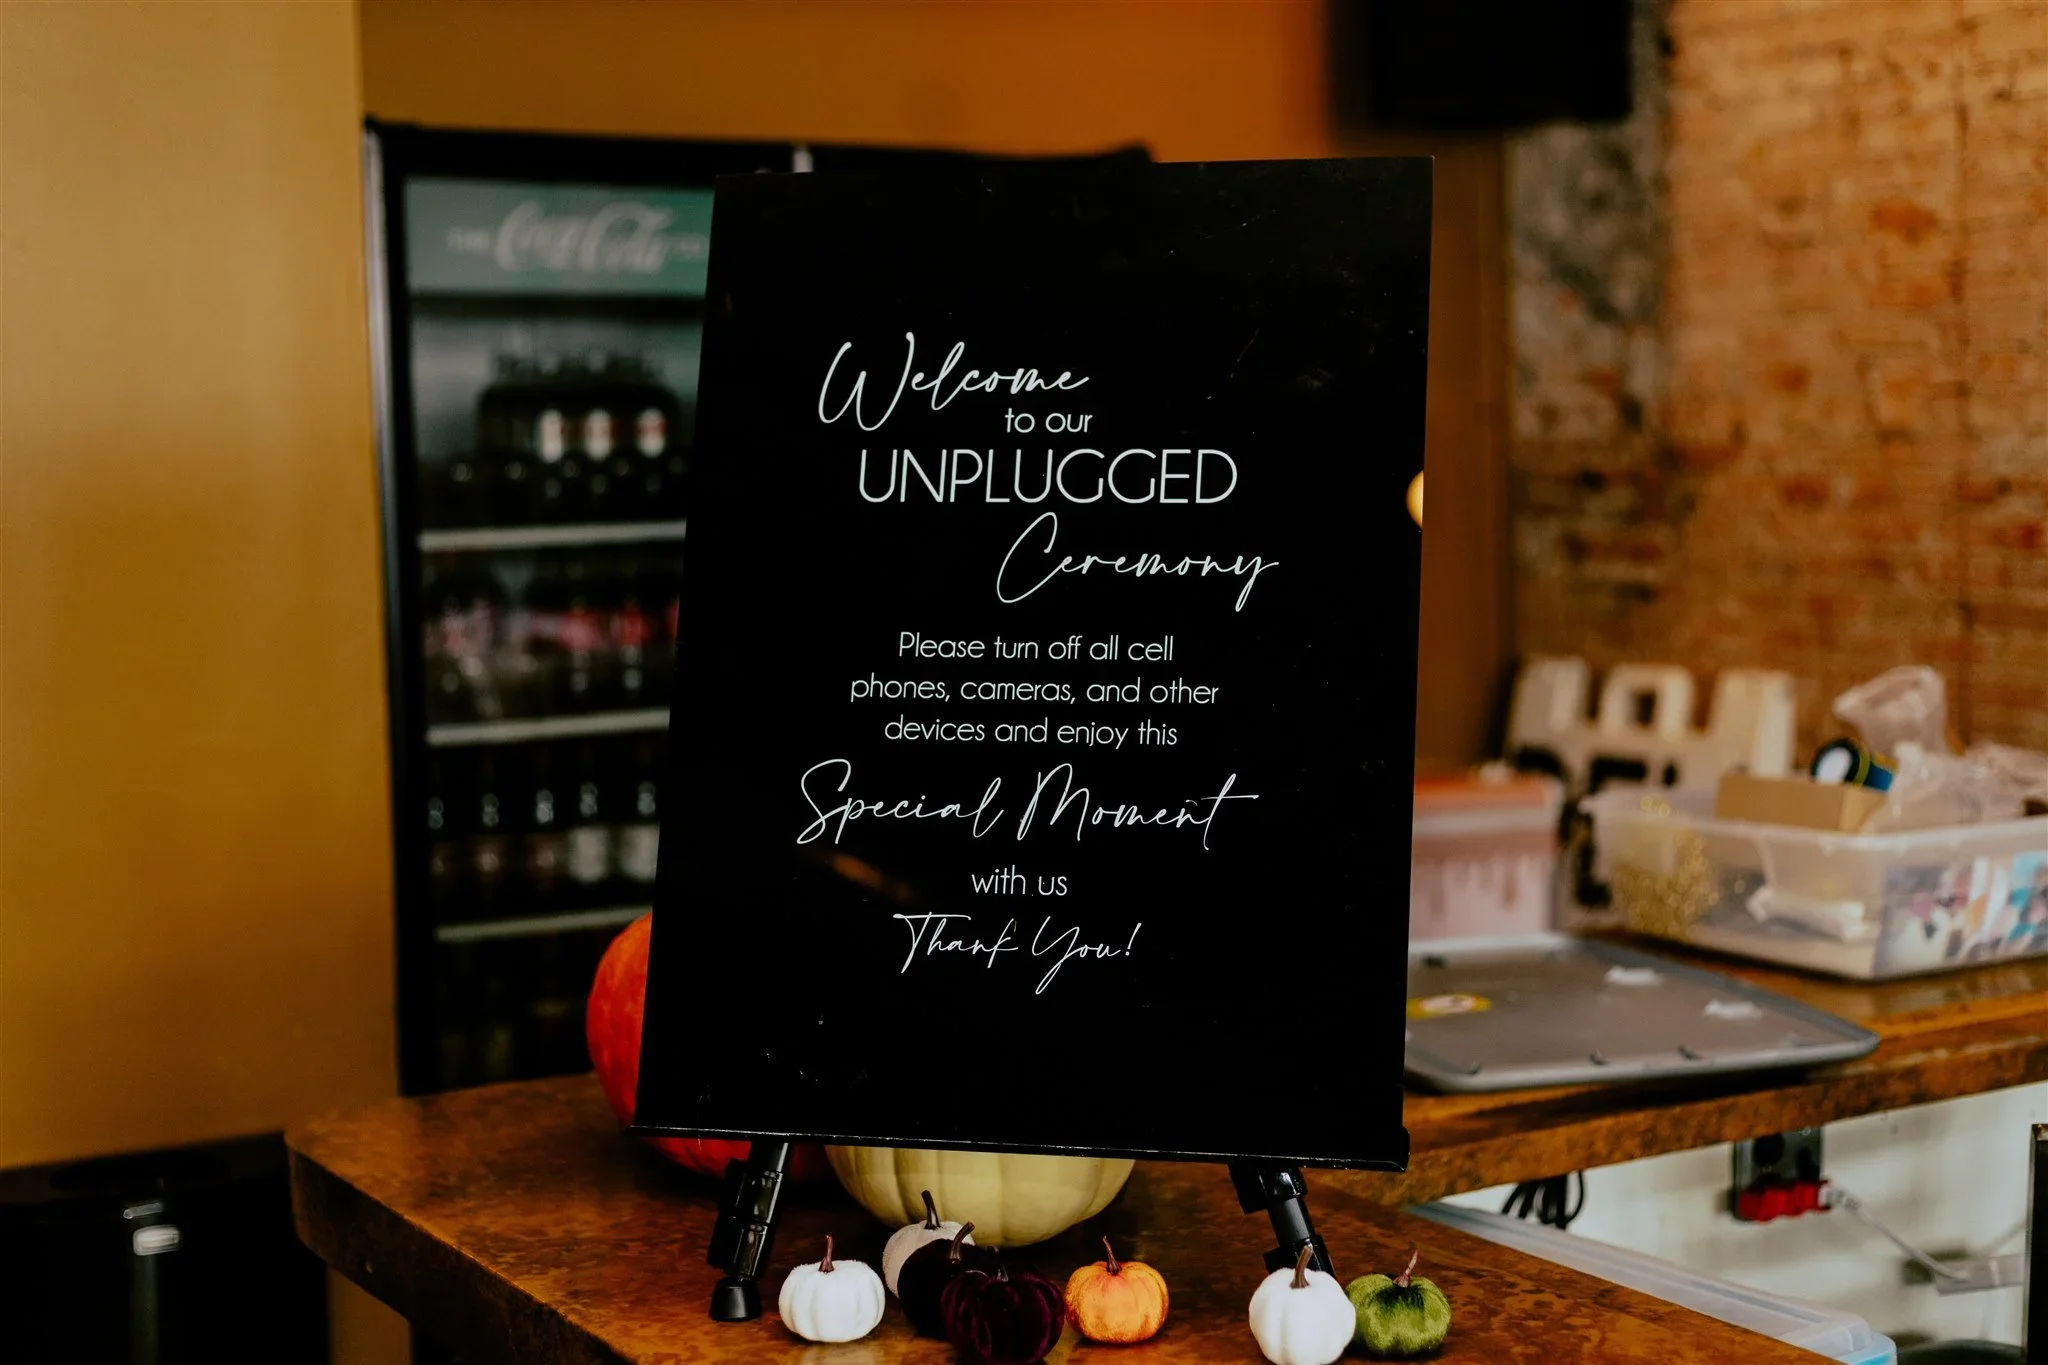 THE Coca-Cola CO
Welcome
to our
UNPLUGGED
Ceremony
Please turn off all cell
phones, cameras, and other
devices and enjoy this
Special Moment
with us
Thank You!